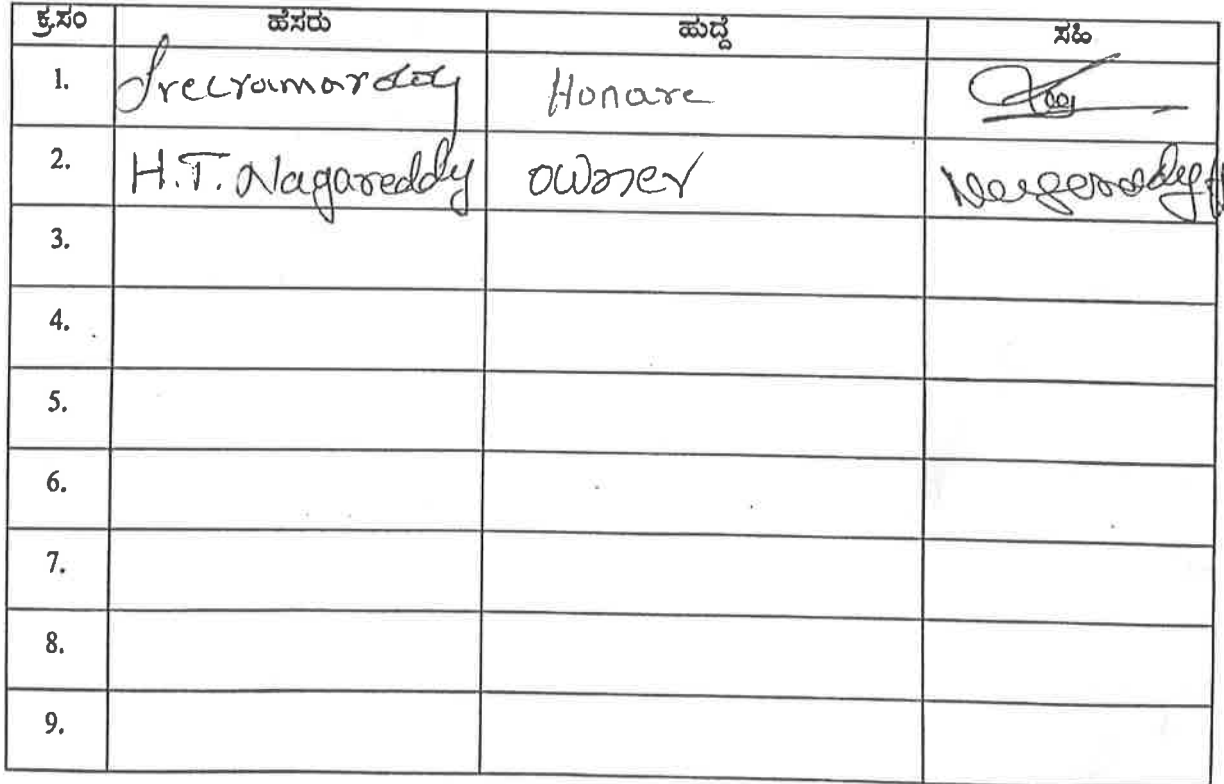 ಕ್ರ.ಸಂ ಹೆಸರು ಹುದ್ದೆ ಸಹಿ
1. Sreeramareddy Honare
2. H.T. Nagareddy owner Nagareddy
3.
4.
5.
6.
7.
8.
9.